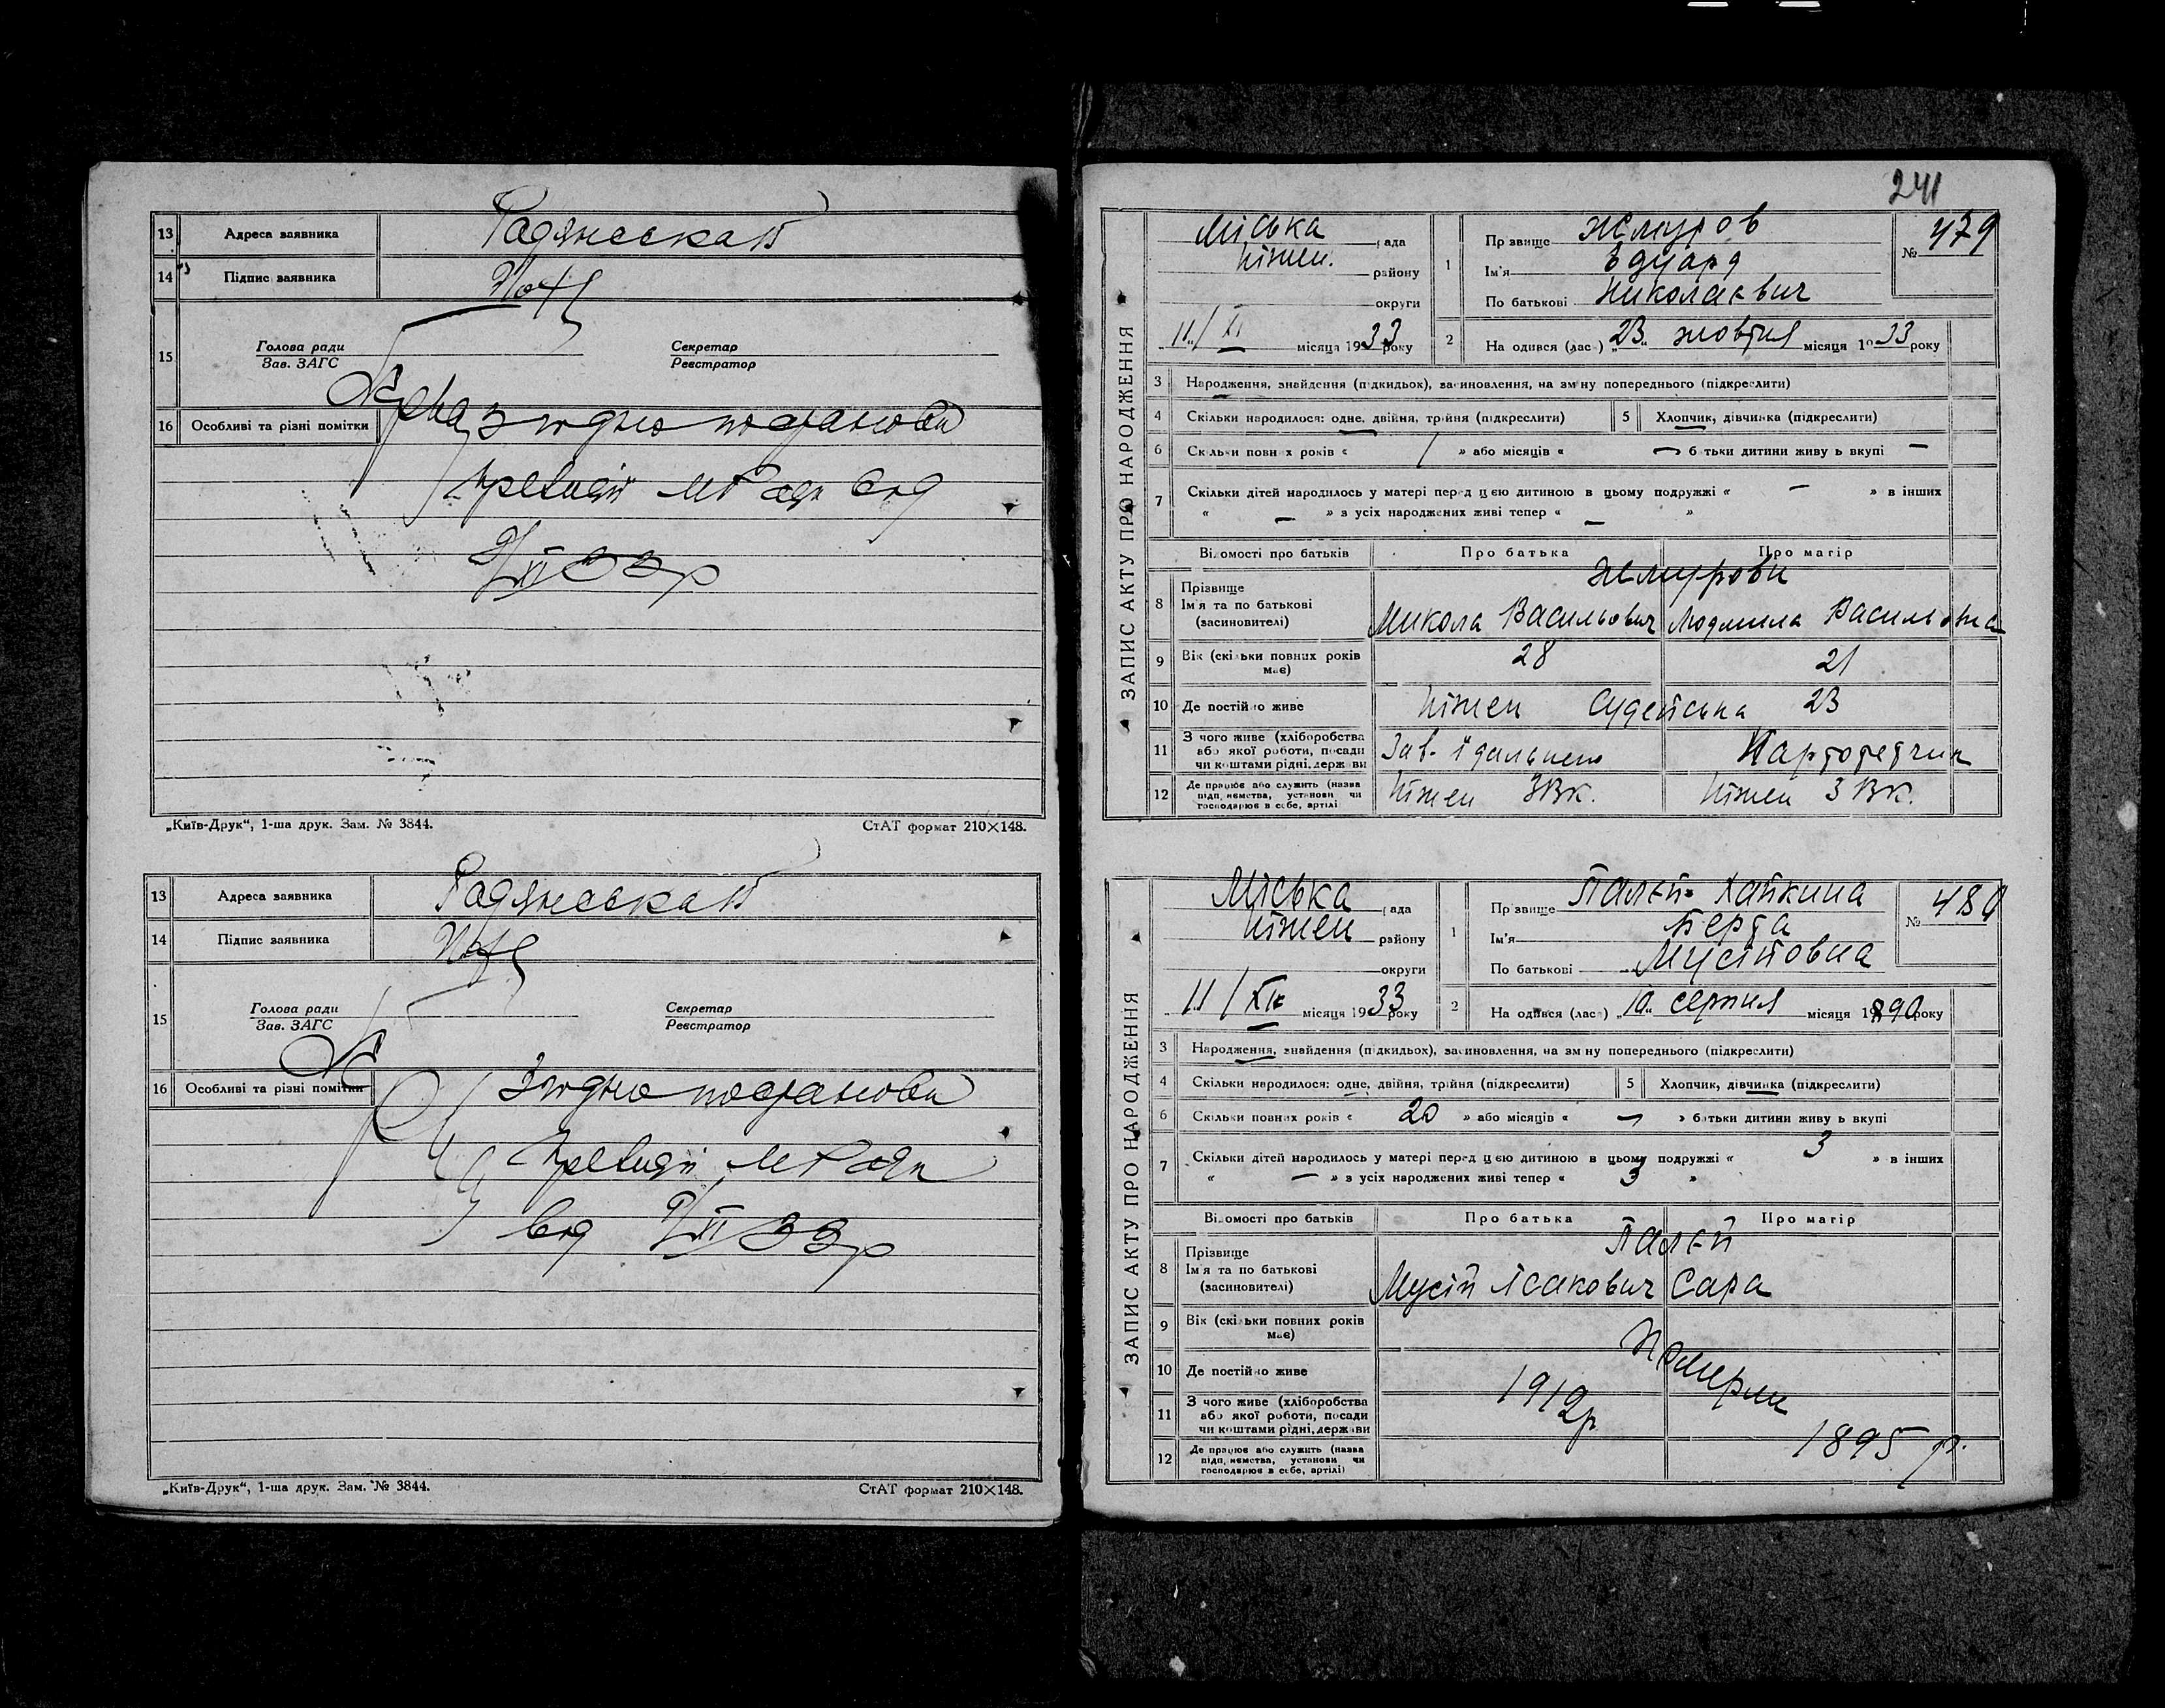 13 Адреса заявника Радянська 15
14 Підпис заявника
15 Голова ради Секретар
Зав. ЗАГС Реєстратор
16 Особливі та різні помітки Згідно постанови
президії МРади від
9/XI 33р
„Київ-Друк“, 1-ша друк. Зам. № 3844. СтАТ формат 210×148.
13 Адреса заявника Радянська 15
14 Підпис заявника
15 Голова ради Секретар
Зав. ЗАГС Реєстратор
16 Особливі та різні помітки Згідно постанови
президії МРади
від 9/XI 33р
„Київ-Друк“, 1-ша друк. Зам. № 3844. СтАТ формат 210×148.
241
ЗАПИС АКТУ ПРО НАРОДЖЕННЯ
Міська рада
Ніжен. району
округи
11/XI місяця 1933 року
1 Прізвище Жмуров
Ім'я Едуард
По батькові Николаєвич
№ 479
2 Народився (лась) „23“ жовтня місяця 1933 року
3 Народження, знайдення (підкидьох), засиновлення, на зміну попереднього (підкреслити)
4 Скільки народилося: одне, двійня, трійня (підкреслити) 5 Хлопчик, дівчинка (підкреслити)
6 Скільки повних років « / » або місяців « — батьки дитини живуть вкупі —
7 Скільки дітей народилось у матері перед цією дитиною в цьому подружжі « — » в інших
« — » з усіх народжених живі тепер « — »
Відомості про батьків Про батька Про матір
8 Прізвище Жмурови
Ім'я та по батькові (засиновителі) Микола Васильович Людмила Васильовна
9 Вік (скільки повних років має) 28 21
10 Де постійно живе Ніжен Судейська 23
11 З чого живе (хліборобства або якої роботи, посади чи коштами рідні, держави Зав. їдальнею Картотетчик
12 Де працює або служить (назва підприємства, установи чи господарює в себе, артілі) Ніжен ЗВК. Ніжен ЗВК.
ЗАПИС АКТУ ПРО НАРОДЖЕННЯ
Міська рада
Ніжен району
округи
11/XI місяця 1933 року
1 Прізвище Палєй-Хайкина
Ім'я Берта
По батькові Мусійовна
№ 480
2 Народився (лась) „10“ серпня місяця 1890 року
3 Народження, знайдення (підкидьох), засиновлення, на зміну попереднього (підкреслити)
4 Скільки народилося: одне, двійня, трійня (підкреслити) 5 Хлопчик, дівчинка (підкреслити)
6 Скільки повних років « 20 » або місяців « — » батьки дитини живуть вкупі
7 Скільки дітей народилось у матері перед цією дитиною в цьому подружжі « 3 » в інших
« — » з усіх народжених живі тепер « 3 »
Відомості про батьків Про батька Про матір
8 Прізвище Палєй
Ім'я та по батькові (засиновителі) Мусій Ісакович Сара
9 Вік (скільки повних років має)
10 Де постійно живе Померли
11 З чого живе (хліборобства або якої роботи, посади чи коштами рідні, держави 1912р. 1895 р.
12 Де працює або служить (назва підприємства, установи чи господарює в себе, артілі)